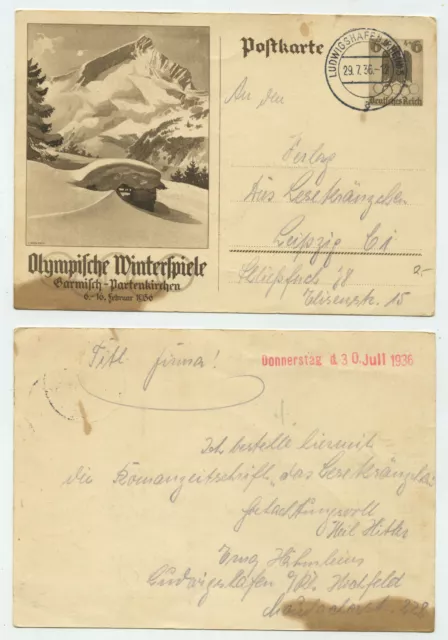 Postkarte
LUDWIGSHAFEN
29.7.36.-12
6 6
Deutsches Reich
An den
Verlag
Das Lesekränzchen
Leipzig C1
Schließfach 38
Elisenstr. 15
2,-
Olympische Winterspiele
Garmisch-Partenkirchen
6.-16. Februar 1936
Titl. Firma!
Donnerstag d. 30. Juli 1936
Ich bestelle hiermit
die Romanzeitschrift „das Lesekränzchen
Hochachtungsvoll
Heil Hitler
Ludwigshafen a/Rh. Hochfeld